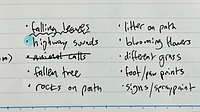 • falling leaves
• highway sounds
• animal calls
• fallen tree
• rocks on path
• litter on path
• blooming flowers
• different grass
• foot/paw points
• signs/spraypaint